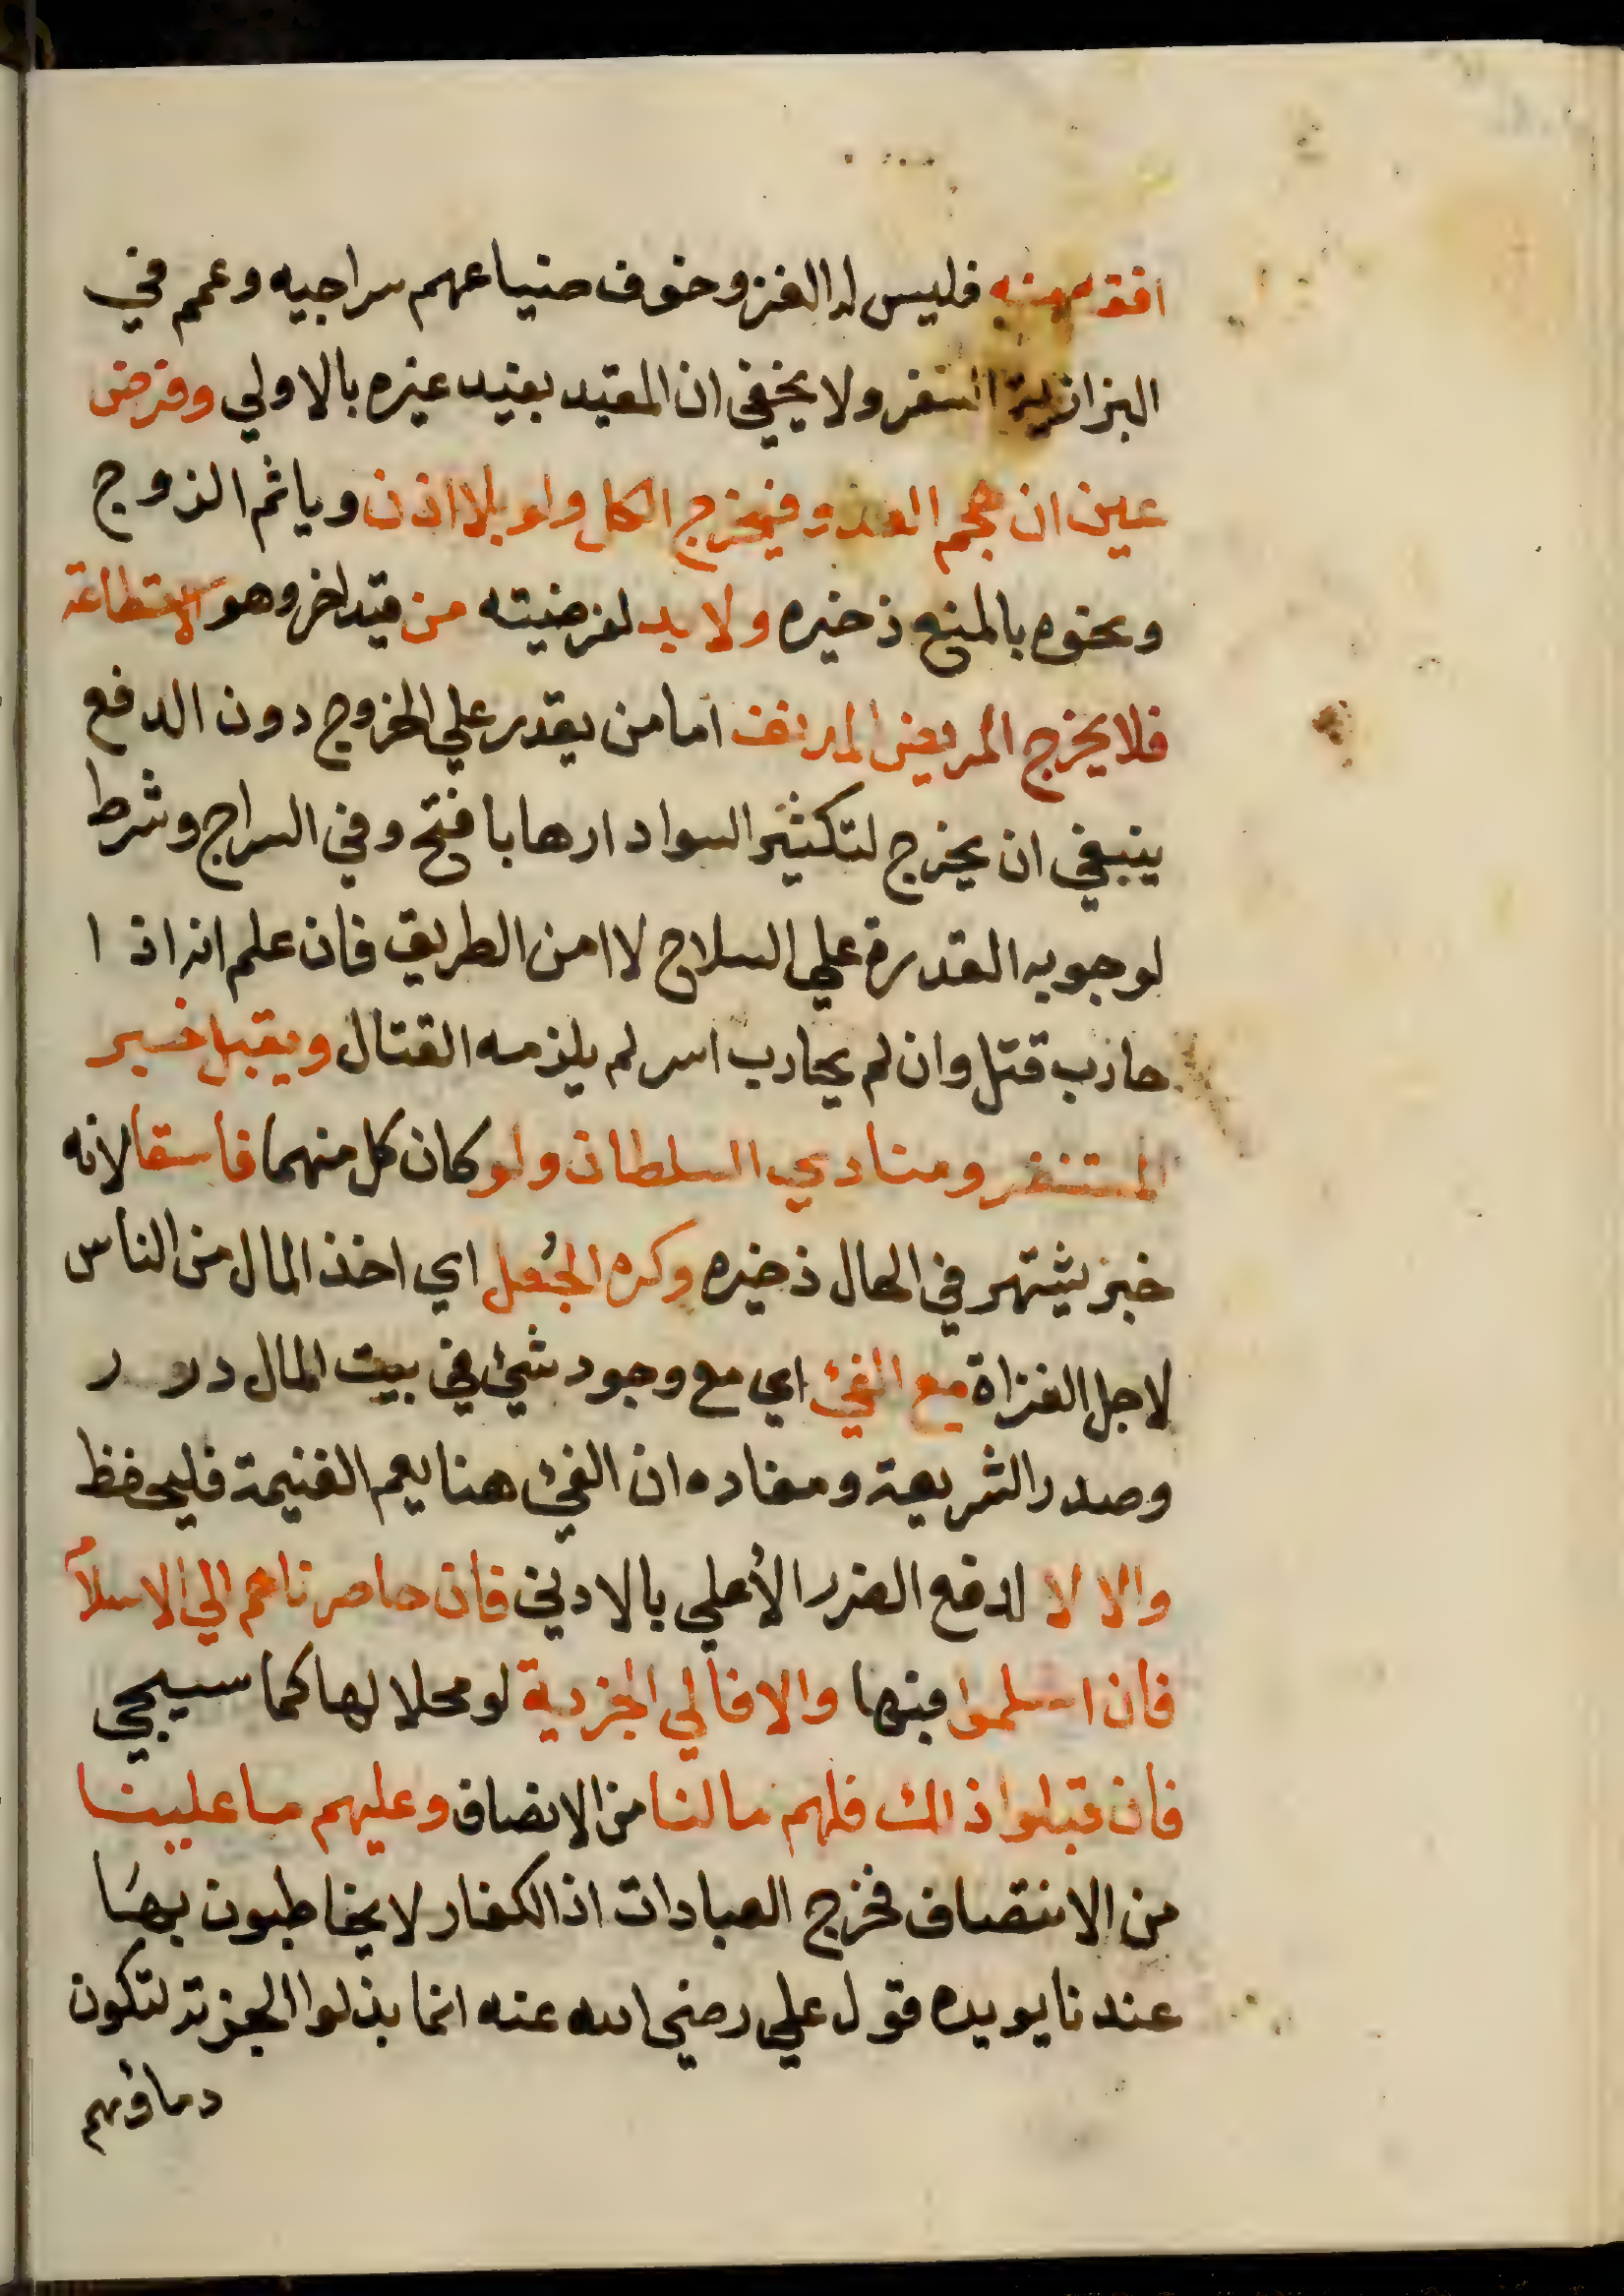 افقه منه فليس له الغزو خوف ضياعهم سراجيه وعمم في
البزازية السفر ولا يخفى ان المقيد يفيد غيره بالاولي وفرض
عين ان هجم العدو فيخرج الكل ولو بلا اذن وياثم الزوج
ونحوه بالمنع ذخيره ولا بد لفرضيته من قيد اخر وهو الاستطاعة
فلا يخرج المريض المدنف امامن يقدر علي الخروج دون الدفع
ينبغي ان يخرج لتكثير السواد ارهابا فتح وفي السراج وشرط
لوجوبه القدرة علي السلاح لا امن الطريق فان علم انه اذا
حارب قتل وان لم يحارب اسر لم يلزمه القتال ويقبل خبر
المستنفر ومنادي السلطان ولو كان كل منهما فاسقا لانه
خبر يشتهر في الحال ذخيره وكره الجُعل اي اخذ المال من الناس
لاجل الغزاة مع الفئ اي مع وجود شئ في بيت المال درر
وصدر الشريعة ومفاده ان الفئ هنا يعم الغنيمة فليحفظ
والا لا لدفع الضرر الأعلي بالادني فان حاصرناهم الي الاسلام
فان اسلموا فبها والا فالي الجزية لو محلا لها كما سيجي
فان قبلوا ذلك فلهم مالنا من الانصاف وعليهم ما علينا
من الانتصاف فخرج العبادات اذ الكفار لا يخاطبون بها
عندنا يويده قول علي رضي الله عنه انما بذلوا الجزية لتكون
دماؤهم